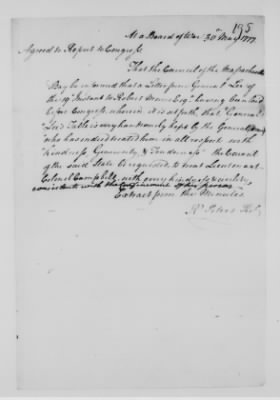 195
At a Board of War 30th May 1777
Agreed to Report to Congress
That the Council of the Massachusetts
Bay be informed that a Letter from General Lee of
the 19th Instant to Robert Morris Esqr having been laid
before Congress wherein it is set forth that General
Lee's Table is very handsomely kept by the General
who has indeed treated him in all respects with
kindness, Generosity & Tenderness the Council
of the said State be requested to treat Lieutenant
Colonel Campbell with every kindness & civility
consistent with the Confinement of his person
Extract from the Minutes
Rd Peters Secy